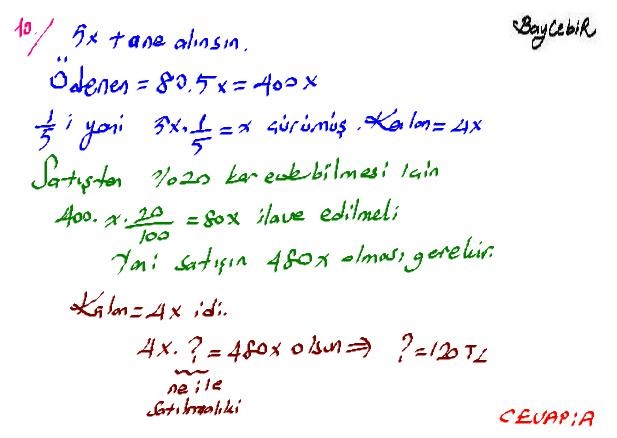 10./ 5x tane alınsın. BaycebiR
Ödenen = 80.5x = 400x
1/5 i yani 5x.1/5 = x çürümüş. Kalan = 4x
Satıştan %20 kar edebilmesi için
400.x.20/100 = 80x ilave edilmeli
Yani satışın 480x olması gerekir.
Kalan = 4x idi.
4x . ? = 480x olsun ⇒ ? = 120 TL
ne ile
satılmalıki
CEVAP: A